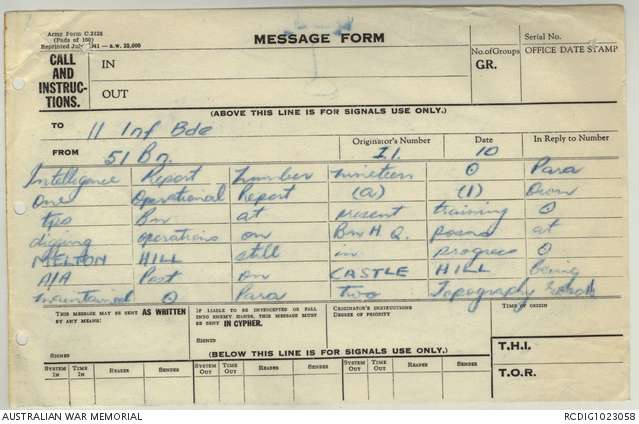 Army Form C.2128
(Pads of 100)
Reprinted July 1941 — n.w. 25,000
MESSAGE FORM
Serial No.
CALL
AND
INSTRUC-
TIONS.
IN
OUT
No. of Groups
GR.
OFFICE DATE STAMP
(ABOVE THIS LINE IS FOR SIGNALS USE ONLY.)
TO 11 Inf Bde
FROM 51 Bn.
Originator's Number I1.
Date 10
In Reply to Number
Intelligence Report number nineteen O Para
One Operational Report (a) (1) Own
tps Bn at present training O
digging operations on Bn H.Q. posns at
MELTON HILL still in progress O
A/A Post on CASTLE HILL being
maintained O Para two Topography
THIS MESSAGE MAY BE SENT AS WRITTEN
BY ANY MEANS.
IF LIABLE TO BE INTERCEPTED OR FALL
INTO ENEMY HANDS, THIS MESSAGE MUST
BE SENT IN CIPHER.
ORIGINATOR'S INSTRUCTIONS
DEGREE OF PRIORITY
TIME OF ORIGIN
SIGNED
SIGNED
(BELOW THIS LINE IS FOR SIGNALS USE ONLY.)
T.H.I.
T.O.R.
SYSTEM IN TIME IN READER SENDER SYSTEM OUT TIME OUT READER SENDER SYSTEM OUT TIME OUT READER SENDER
AUSTRALIAN WAR MEMORIAL
RCDIG1023058